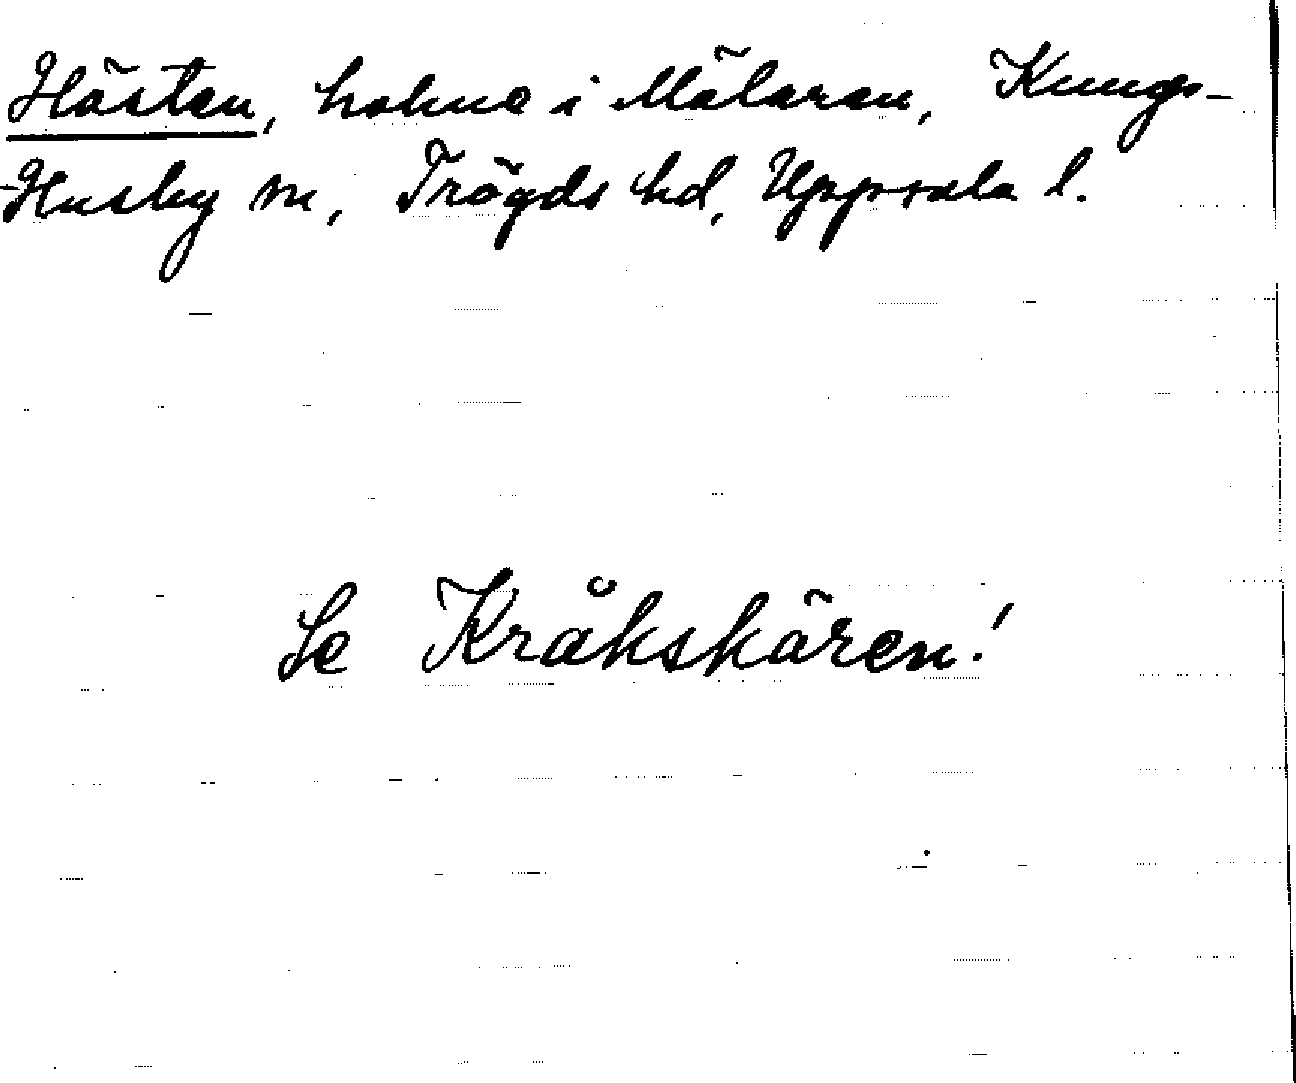 Hästen, holme i Mälaren, Kungs-
-Husby sn, Trögds hd, Uppsala l.
Se Kråkskären!